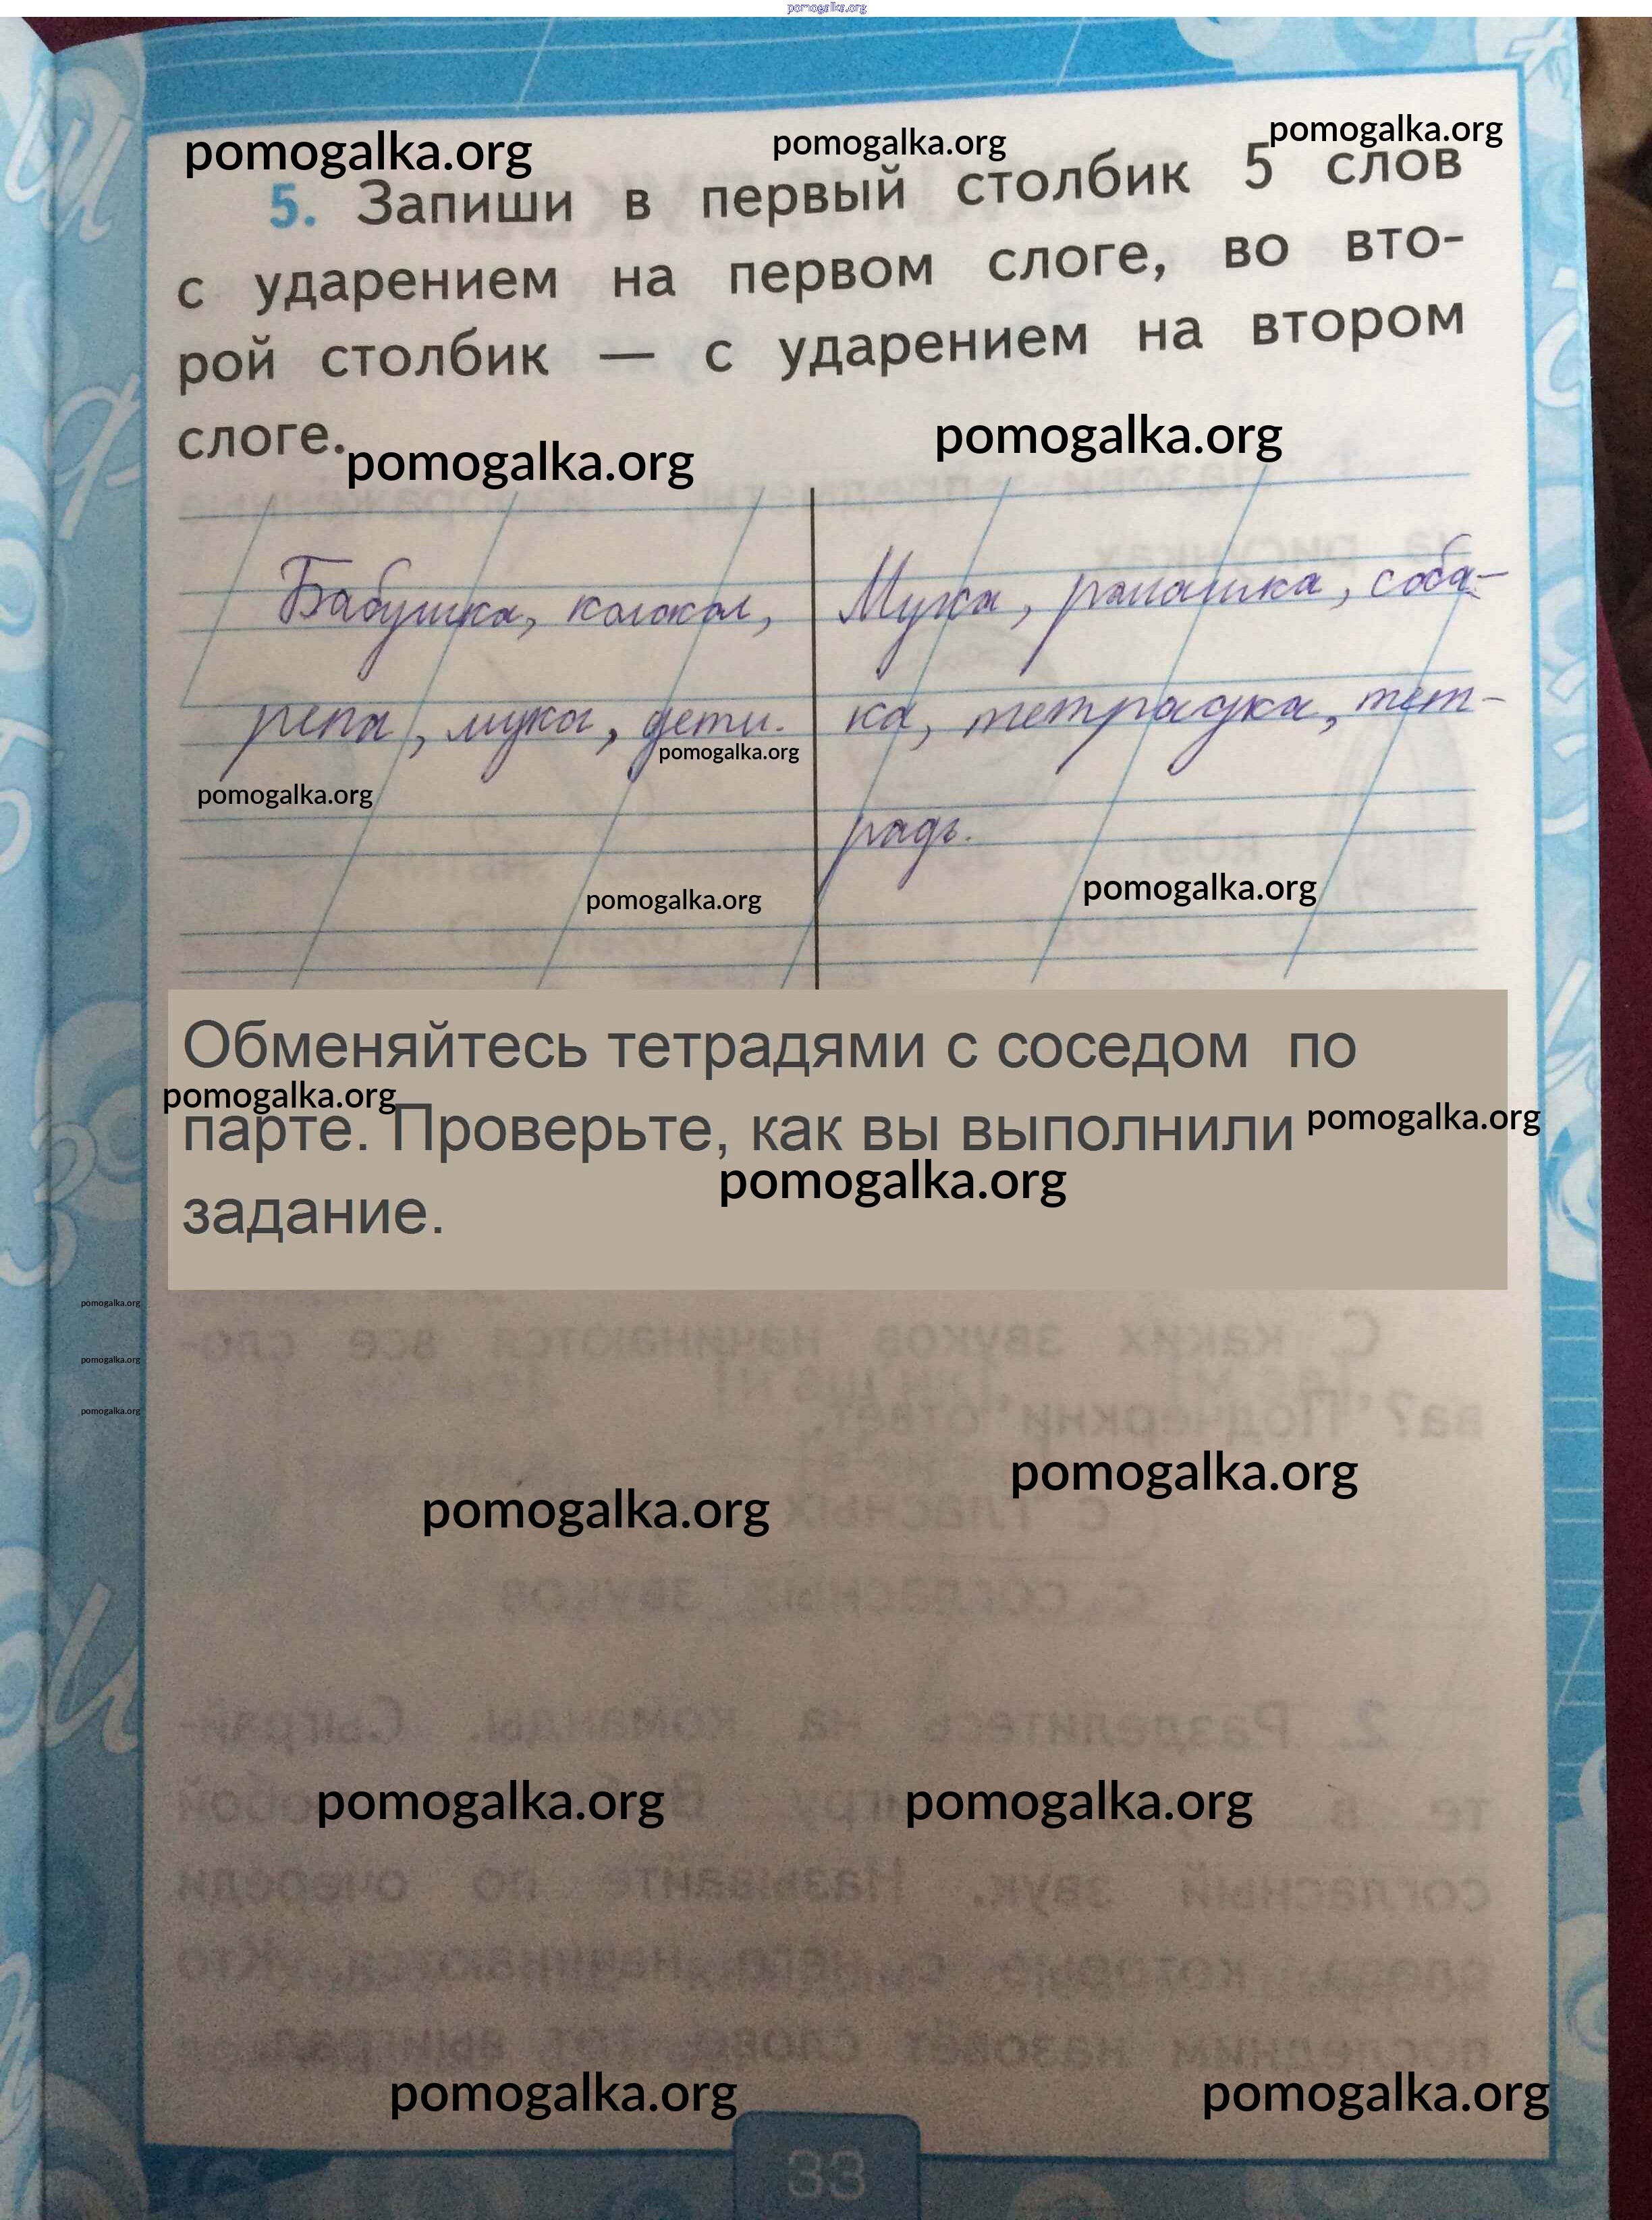 pomogalka.org
pomogalka.org pomogalka.org pomogalka.org
5. Запиши в первый столбик 5 слов
с ударением на первом слоге, во вто-
рой столбик — с ударением на втором
слоге.
pomogalka.org pomogalka.org
Бабушка, колокол,
репа, мука, дети.
pomogalka.org
pomogalka.org
pomogalka.org
Мука, ромашка, соба-
ка, тетрадка, тет-
радь.
pomogalka.org
Обменяйтесь тетрадями с соседом по
pomogalka.org
парте. Проверьте, как вы выполнили
pomogalka.org
pomogalka.org
задание.
pomogalka.org
pomogalka.org
pomogalka.org
pomogalka.org
pomogalka.org
pomogalka.org pomogalka.org
pomogalka.org pomogalka.org
33